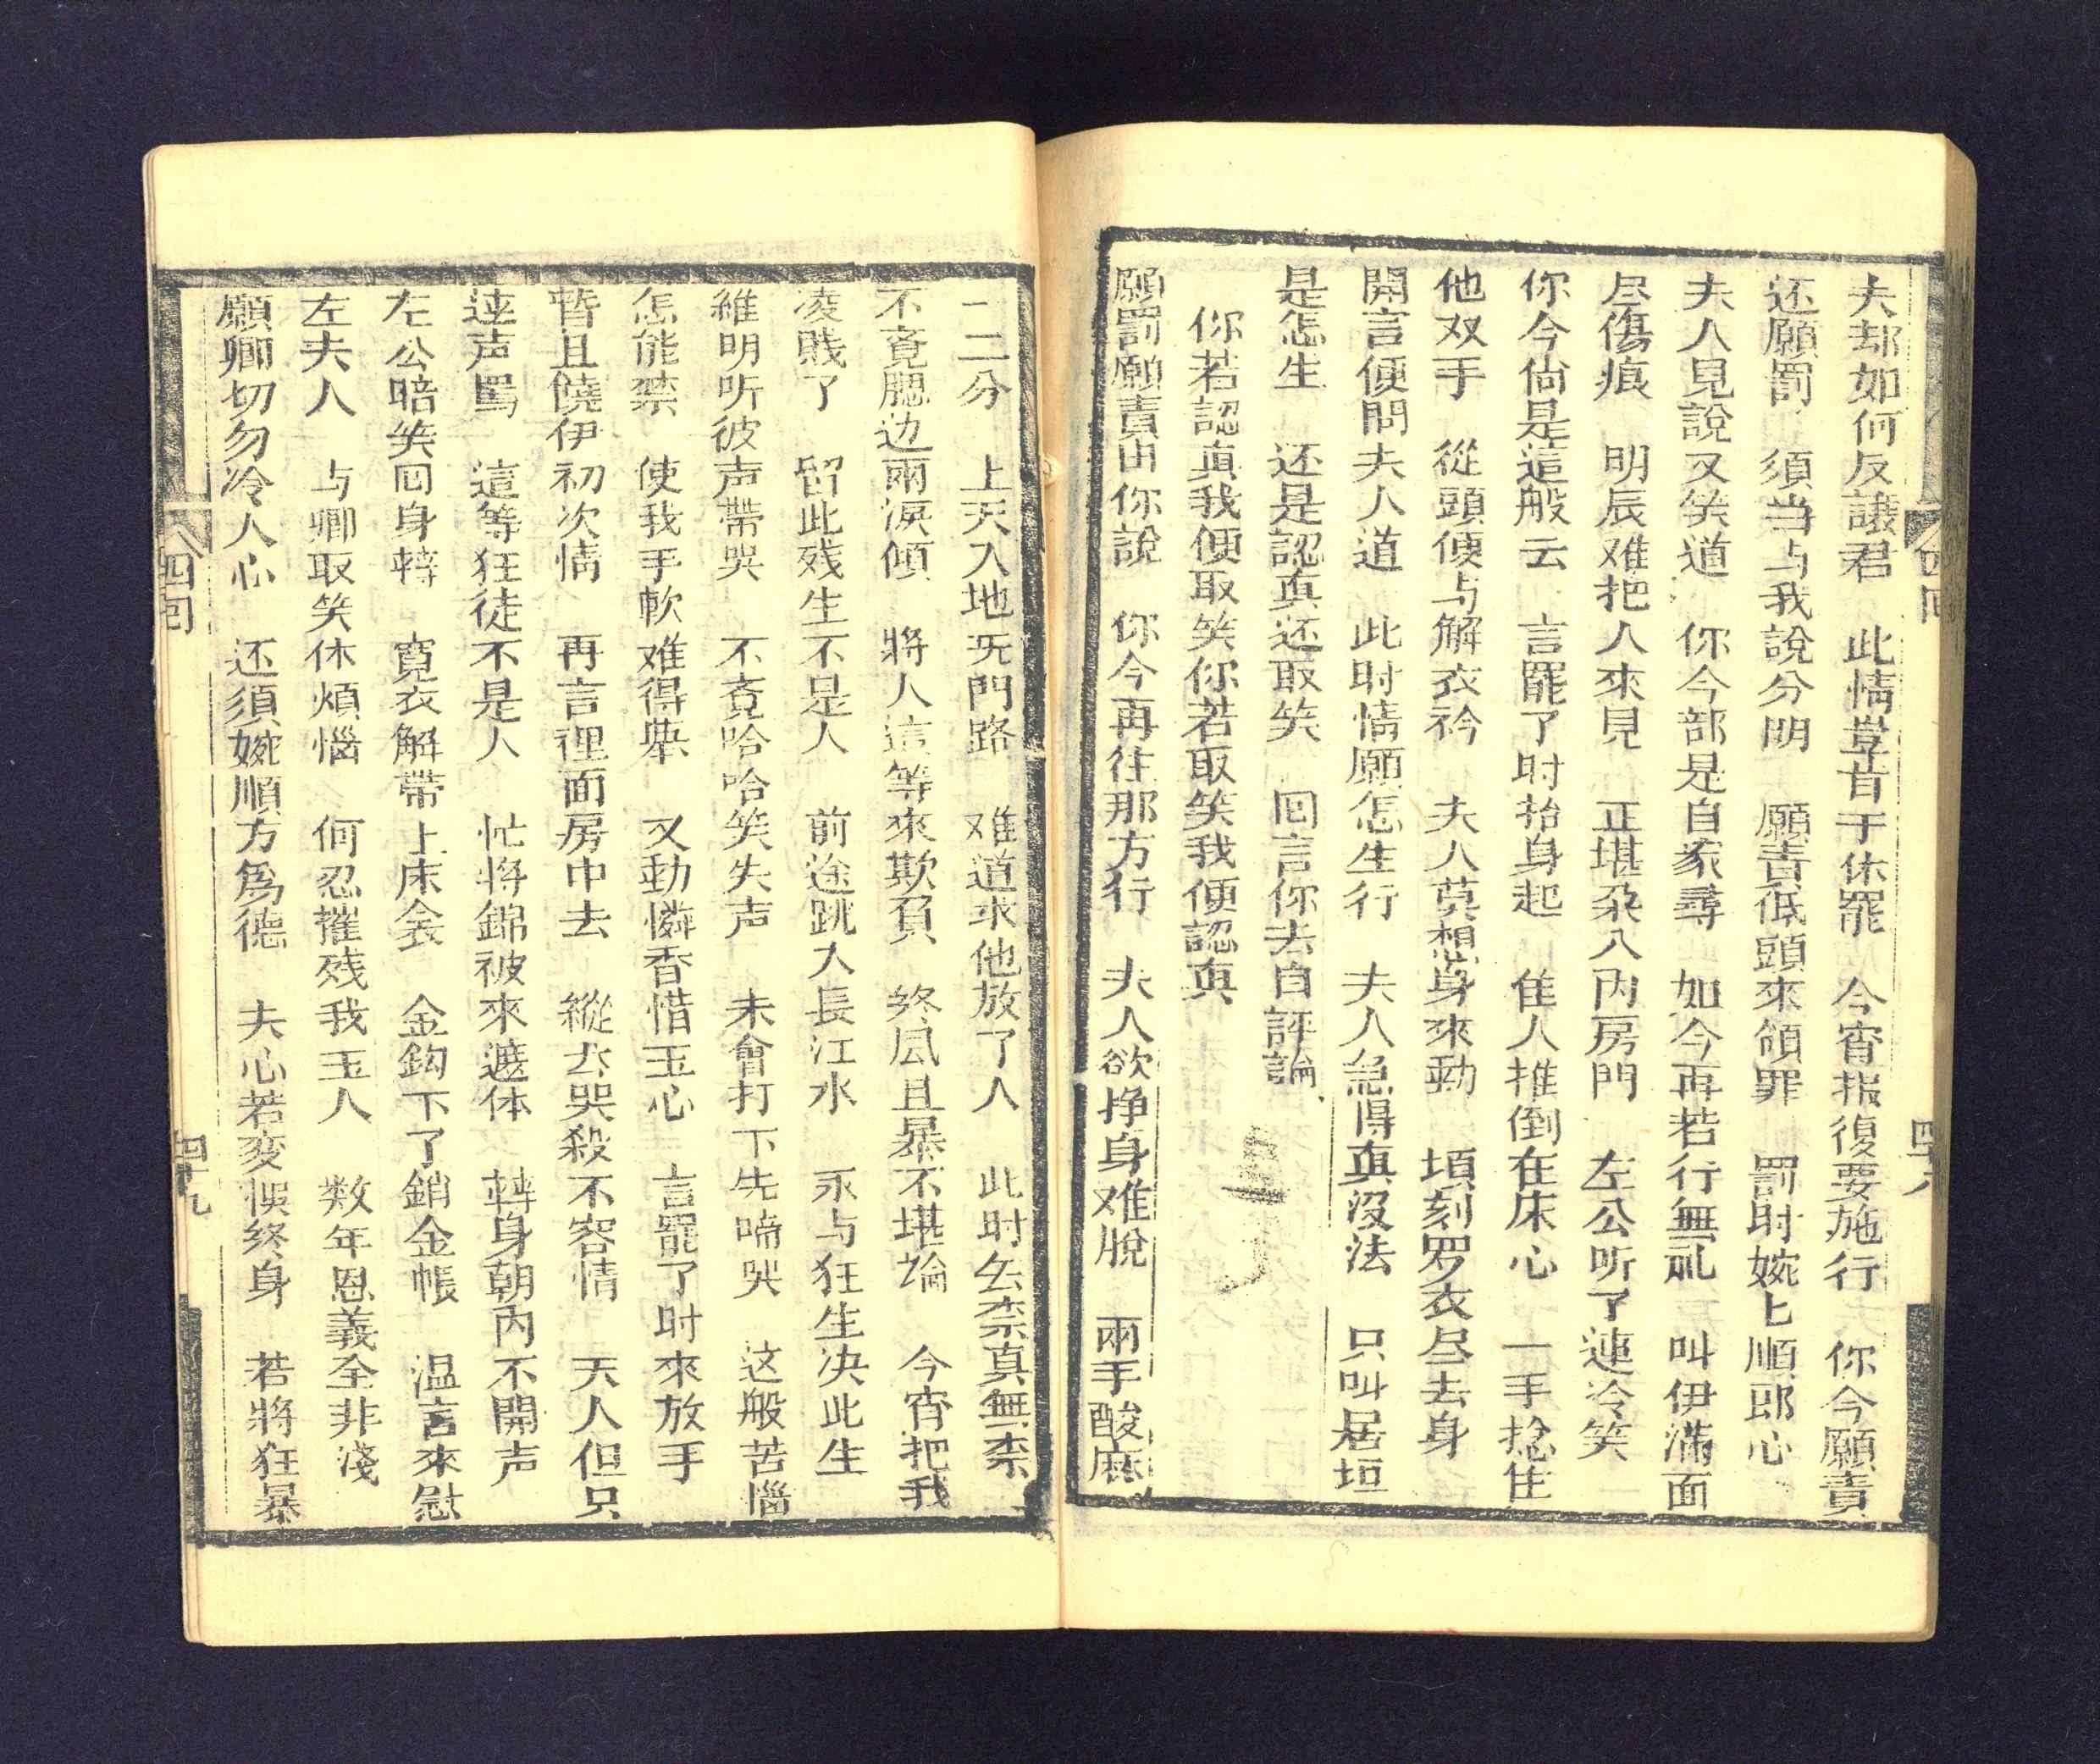 夫却如何反讓君　此情豈肯干休罷　今宵报復要施行　你今願責
还願罰　須当与我說分明　願責低頭來領罪　罰时婉上順郎心
夫人見說又笑道　你今部是自家尋　如今再若行無礼　叫伊滿面
尽傷痕　明辰难把人來見　正堪朶入內房門　左公听了連冷笑
你今尙是這般云　言罷了时抬身起　隹人推倒在床心　一手捻住
他双手　從頭便与解衣衿　夫人莫想身來動　頃刻罗衣尽去身
開言便問夫人道　此时情願怎生行　夫人急得真沒法　只叫居垣
是怎生　还是認真还取笑　囘言你去自評論
你若認真我便取笑你若取笑我便認真
願罰願責由你說　你今再往那方行　夫人欲掙身难脫　兩手酸麻
四回
四十八
一二分　上天入地无門路　难道求他放了人　此时幺柰真無柰
不竟腮边兩淚傾　將人這等來欺負　終風且暴不堪論　今宵把我
凌賤了　留此残生不是人　前途跳入長江水　永与狂生决此生
維明听彼声帶哭　不竟哈哈笑失声　未曾打下先啼哭　这般苦惱
怎能禁　使我手軟难得舉　又動憐香惜玉心　言罷了时來放手
暫且饒伊初次情　再言裡面房中去　縱然哭殺不容情　夫人但只
連声罵　這等狂徒不是人　忙将錦被來遮体　轉身朝內不開声
左公暗笑囘身轉　寬衣解帶上床衾　金鈎下了銷金帳　温言來慰
左夫人　与卿取笑休煩惱　何忍摧残我玉人　数年恩義全非淺
願卿切勿冷人心　还須婉順方爲德　夫心若变悞終身　若將狂暴
四回
四十九